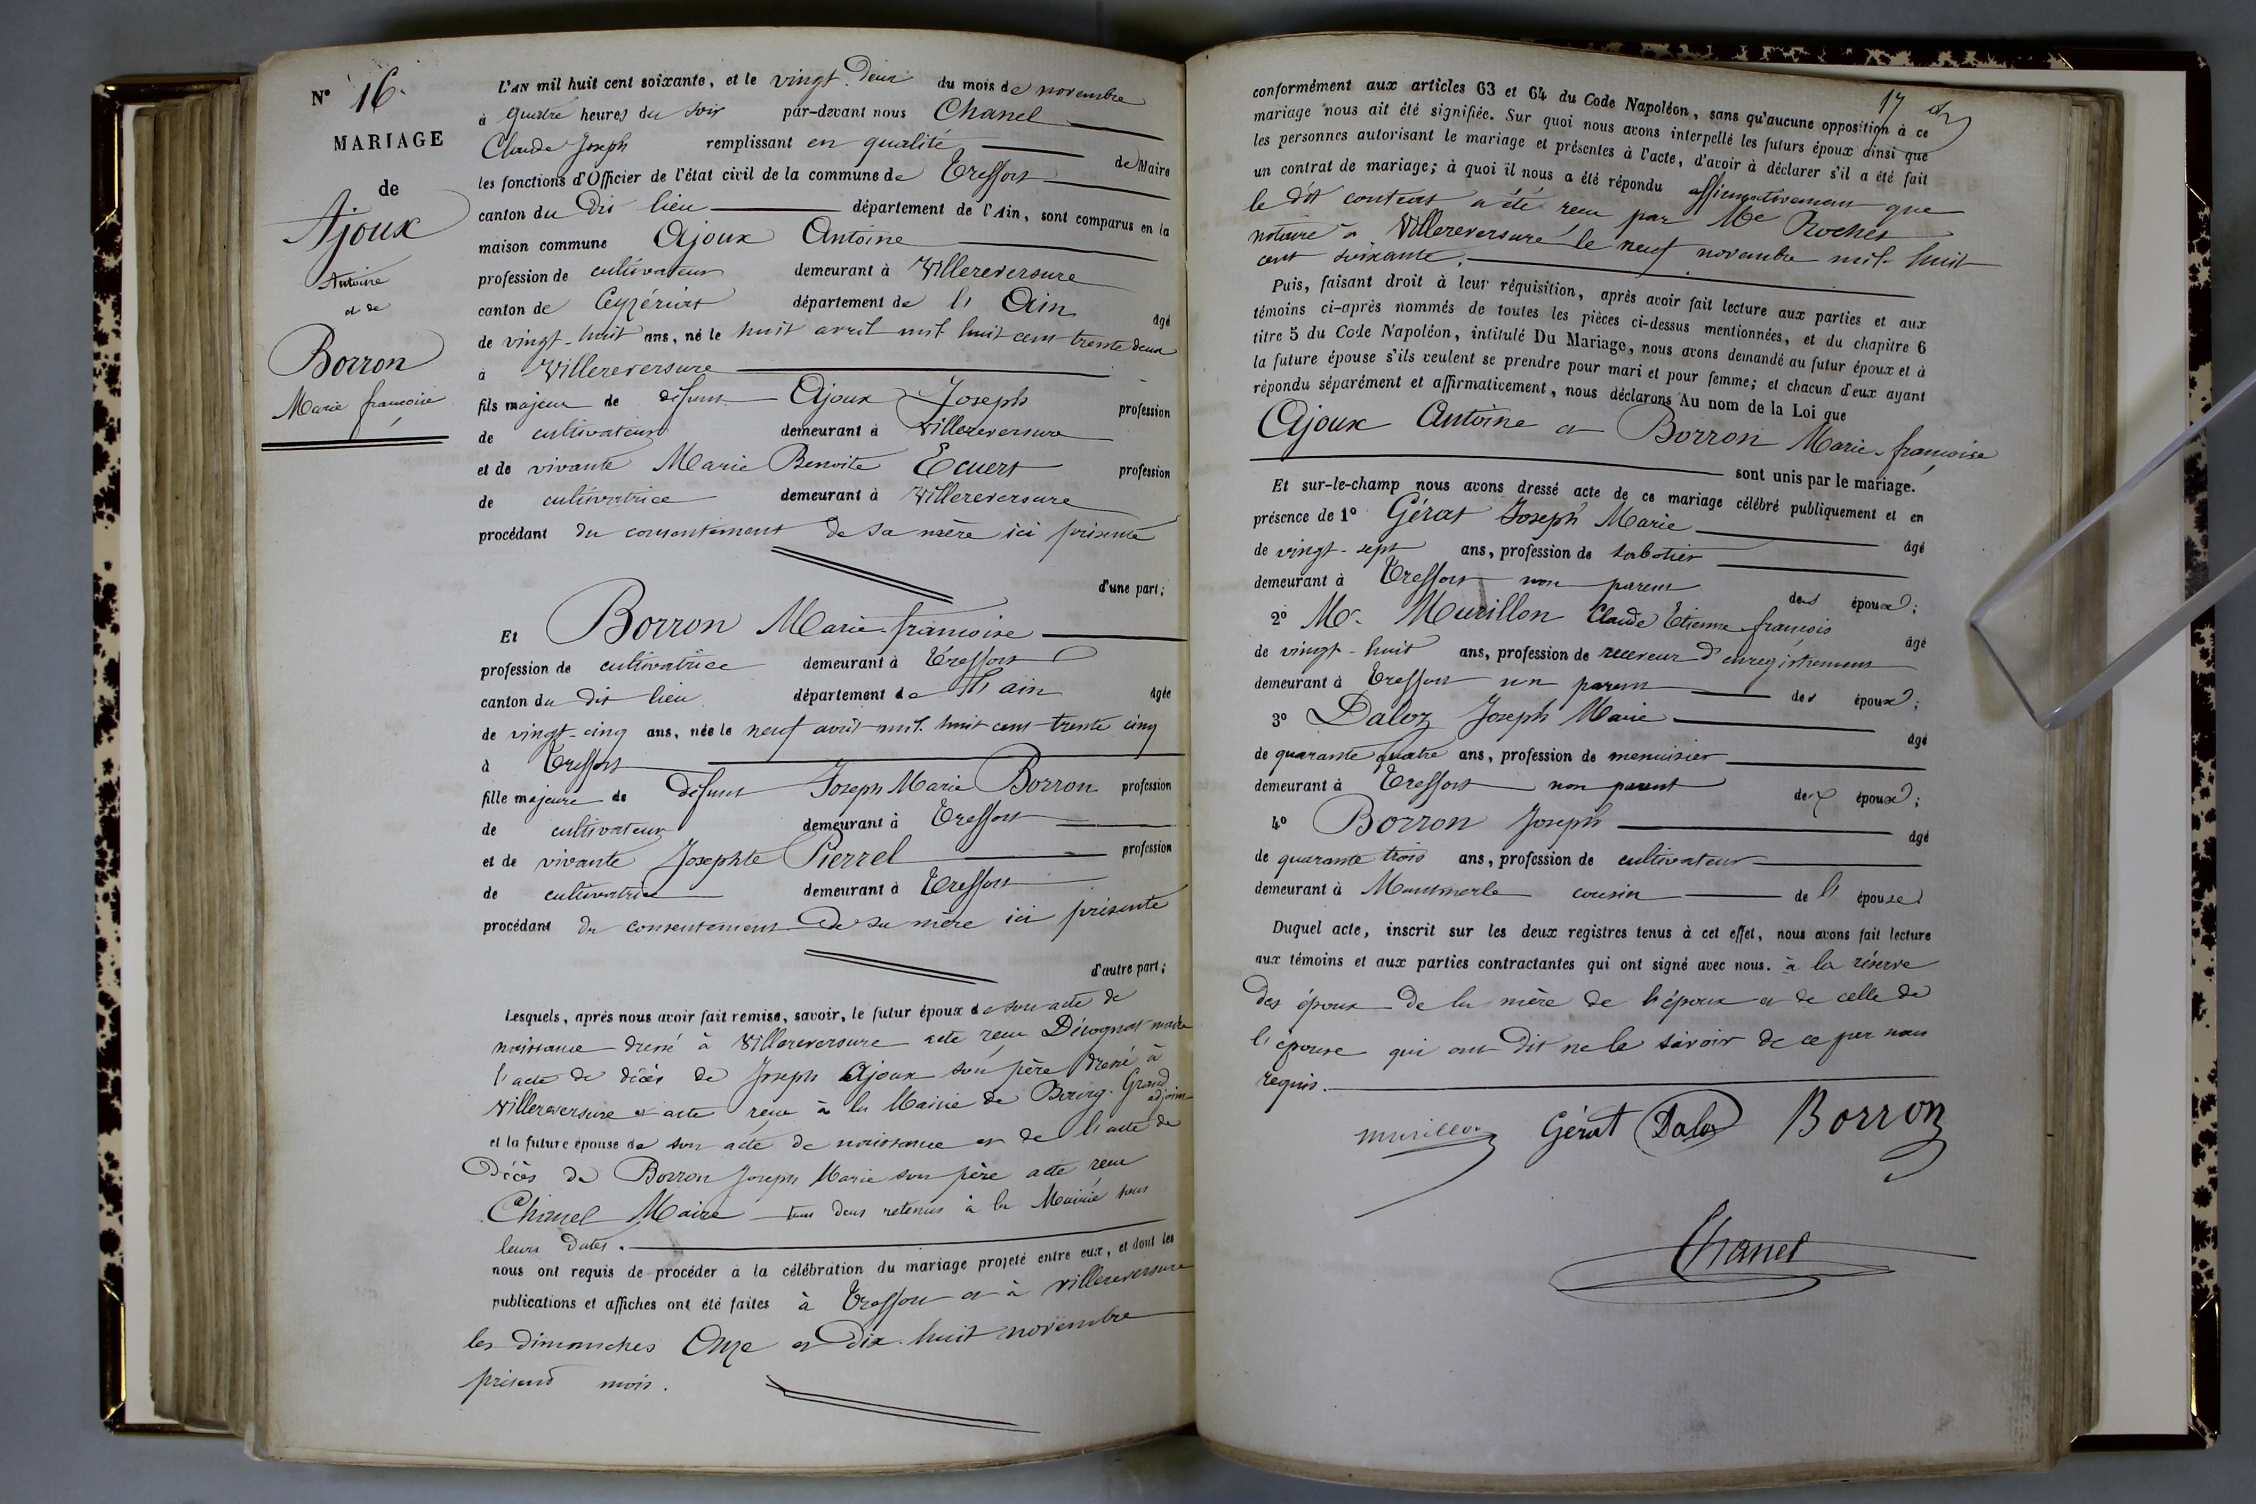 N° 16.
MARIAGE
de
Ajoux
Antoine
et de
Borron
Marie françoise
L'AN mil huit cent soixante, et le vingt Deux du mois de novembre
à quatre heures du soir par-devant nous Chanel
Claude Joseph remplissant en qualité de Maire
les fonctions d'Officier de l'état civil de la commune de Treffort
canton du Dit lieu département de l'Ain, sont comparus en la
maison commune Ajoux Antoine
profession de cultivateur demeurant à Villereversure
canton de Ceyzériat département de l'Ain âgé
de vingt-huit ans, né le huit avril mil huit cent trente deux
à Villereversure
fils majeur de défunt Ajoux Joseph profession
de cultivateur demeurant à Villereversure
et de vivante Marie Benoite Ecuert profession
de cultivatrice demeurant à Villereversure
procédant du consentement de sa mère ici présente
d'une part;
Et Borron Marie-françoise
profession de cultivatrice demeurant à Treffort
canton du dit lieu département de l'ain âgée
de vingt-cinq ans, née le neuf avril mil huit cent trente cinq
à Treffort
fille majeure de défunt Joseph Marie Borron profession
de cultivateur demeurant à Treffort
et de vivante Josephte Pierrel profession
de cultivatrice demeurant à Treffort
procédant du consentement de sa mère ici présente
d'autre part;
Lesquels, après nous avoir fait remise, savoir, le futur époux de son acte de
naissance dressé à Villereversure acte reçu maire
l'acte de décès de Joseph Ajoux son père dressé à
Villereversure et acte reçu à la Mairie de Bourg. Grand adjoint
et la future épouse de son acte de naissance et de l'acte de
Décès de Borron Joseph Marie son père acte reçu
Chanel Maire tous deux retenus à la Mairie sous
leurs dates.
nous ont requis de procéder à la célébration du mariage projeté entre eux, et dont les
publications et affiches ont été faites à Treffort et à Villereversure
les dimanches Onze et Dix-huit novembre
présent mois.
17
conformément aux articles 63 et 64 du Code Napoléon, sans qu'aucune opposition à ce
mariage nous ait été signifiée. Sur quoi nous avons interpellé les futurs époux ainsi que
les personnes autorisant le mariage et présentes à l'acte, d'avoir à déclarer s'il a été fait
un contrat de mariage; à quoi il nous a été répondu affirmativement que
le dit contrat a été reçu par Me Rochet
notaire à Villereversure le neuf novembre mil huit
cent soixante.
Puis, faisant droit à leur réquisition, après avoir fait lecture aux parties et aux
témoins ci-après nommés de toutes les pièces ci-dessus mentionnées, et du chapitre 6
titre 5 du Code Napoléon, intitulé Du Mariage, nous avons demandé au futur époux et à
la future épouse s'ils veulent se prendre pour mari et pour femme; et chacun d'eux ayant
répondu séparément et affirmativement, nous déclarons Au nom de la Loi que
Ajoux Antoine et Borron Marie-françoise
sont unis par le mariage.
Et sur-le-champ nous avons dressé acte de ce mariage célébré publiquement et en
présence de 1° Gérat Joseph Marie âgé
de vingt-sept ans, profession de sabotier
demeurant à Treffort non parent des époux;
2° Mr. Murillon Claude Etienne françois âgé
de vingt-huit ans, profession de receveur d'enregistrement
demeurant à Treffort non parent des époux;
3° Daloz Joseph Marie âgé
de quarante quatre ans, profession de menuisier
demeurant à Treffort non parent des époux;
4° Borron Joseph âgé
de quarante trois ans, profession de cultivateur
demeurant à Montmerle cousin de l'épouse
Duquel acte, inscrit sur les deux registres tenus à cet effet, nous avons fait lecture
aux témoins et aux parties contractantes qui ont signé avec nous. à la réserve
Des époux De la mère de l'époux et de celle de
l'épouse qui ont Dit ne le savoir de ce par nous
requis.
Murillon Gérat Daloz Borron
Chanel